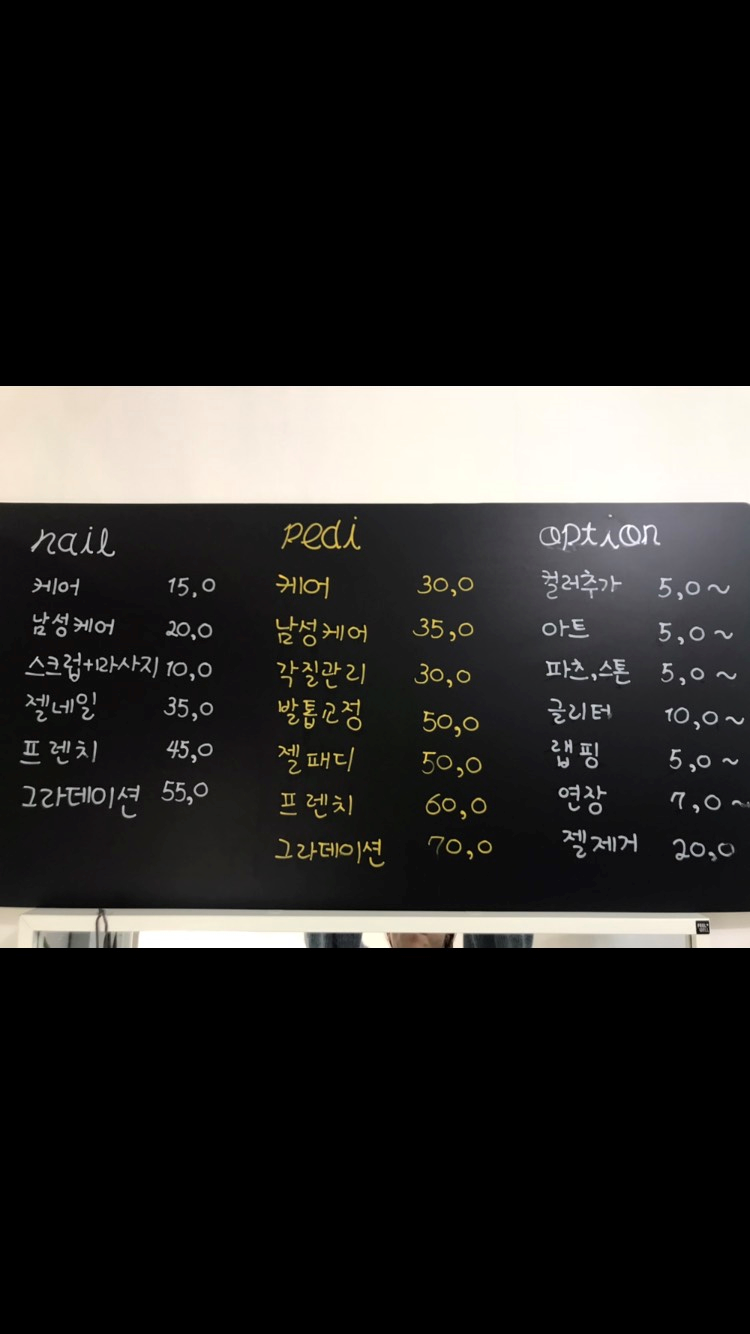 nail
케어 15,0
남성케어 20,0
스크럽+마사지 10,0
젤네일 35,0
프렌치 45,0
그라데이션 55,0
pedi
케어 30,0
남성케어 35,0
각질관리 30,0
발톱교정 50,0
젤패디 50,0
프렌치 60,0
그라데이션 70,0
option
컬러추가 5,0~
아트 5,0~
파츠,스톤 5,0~
글리터 10,0~
랩핑 5,0~
연장 7,0~
젤제거 20,0